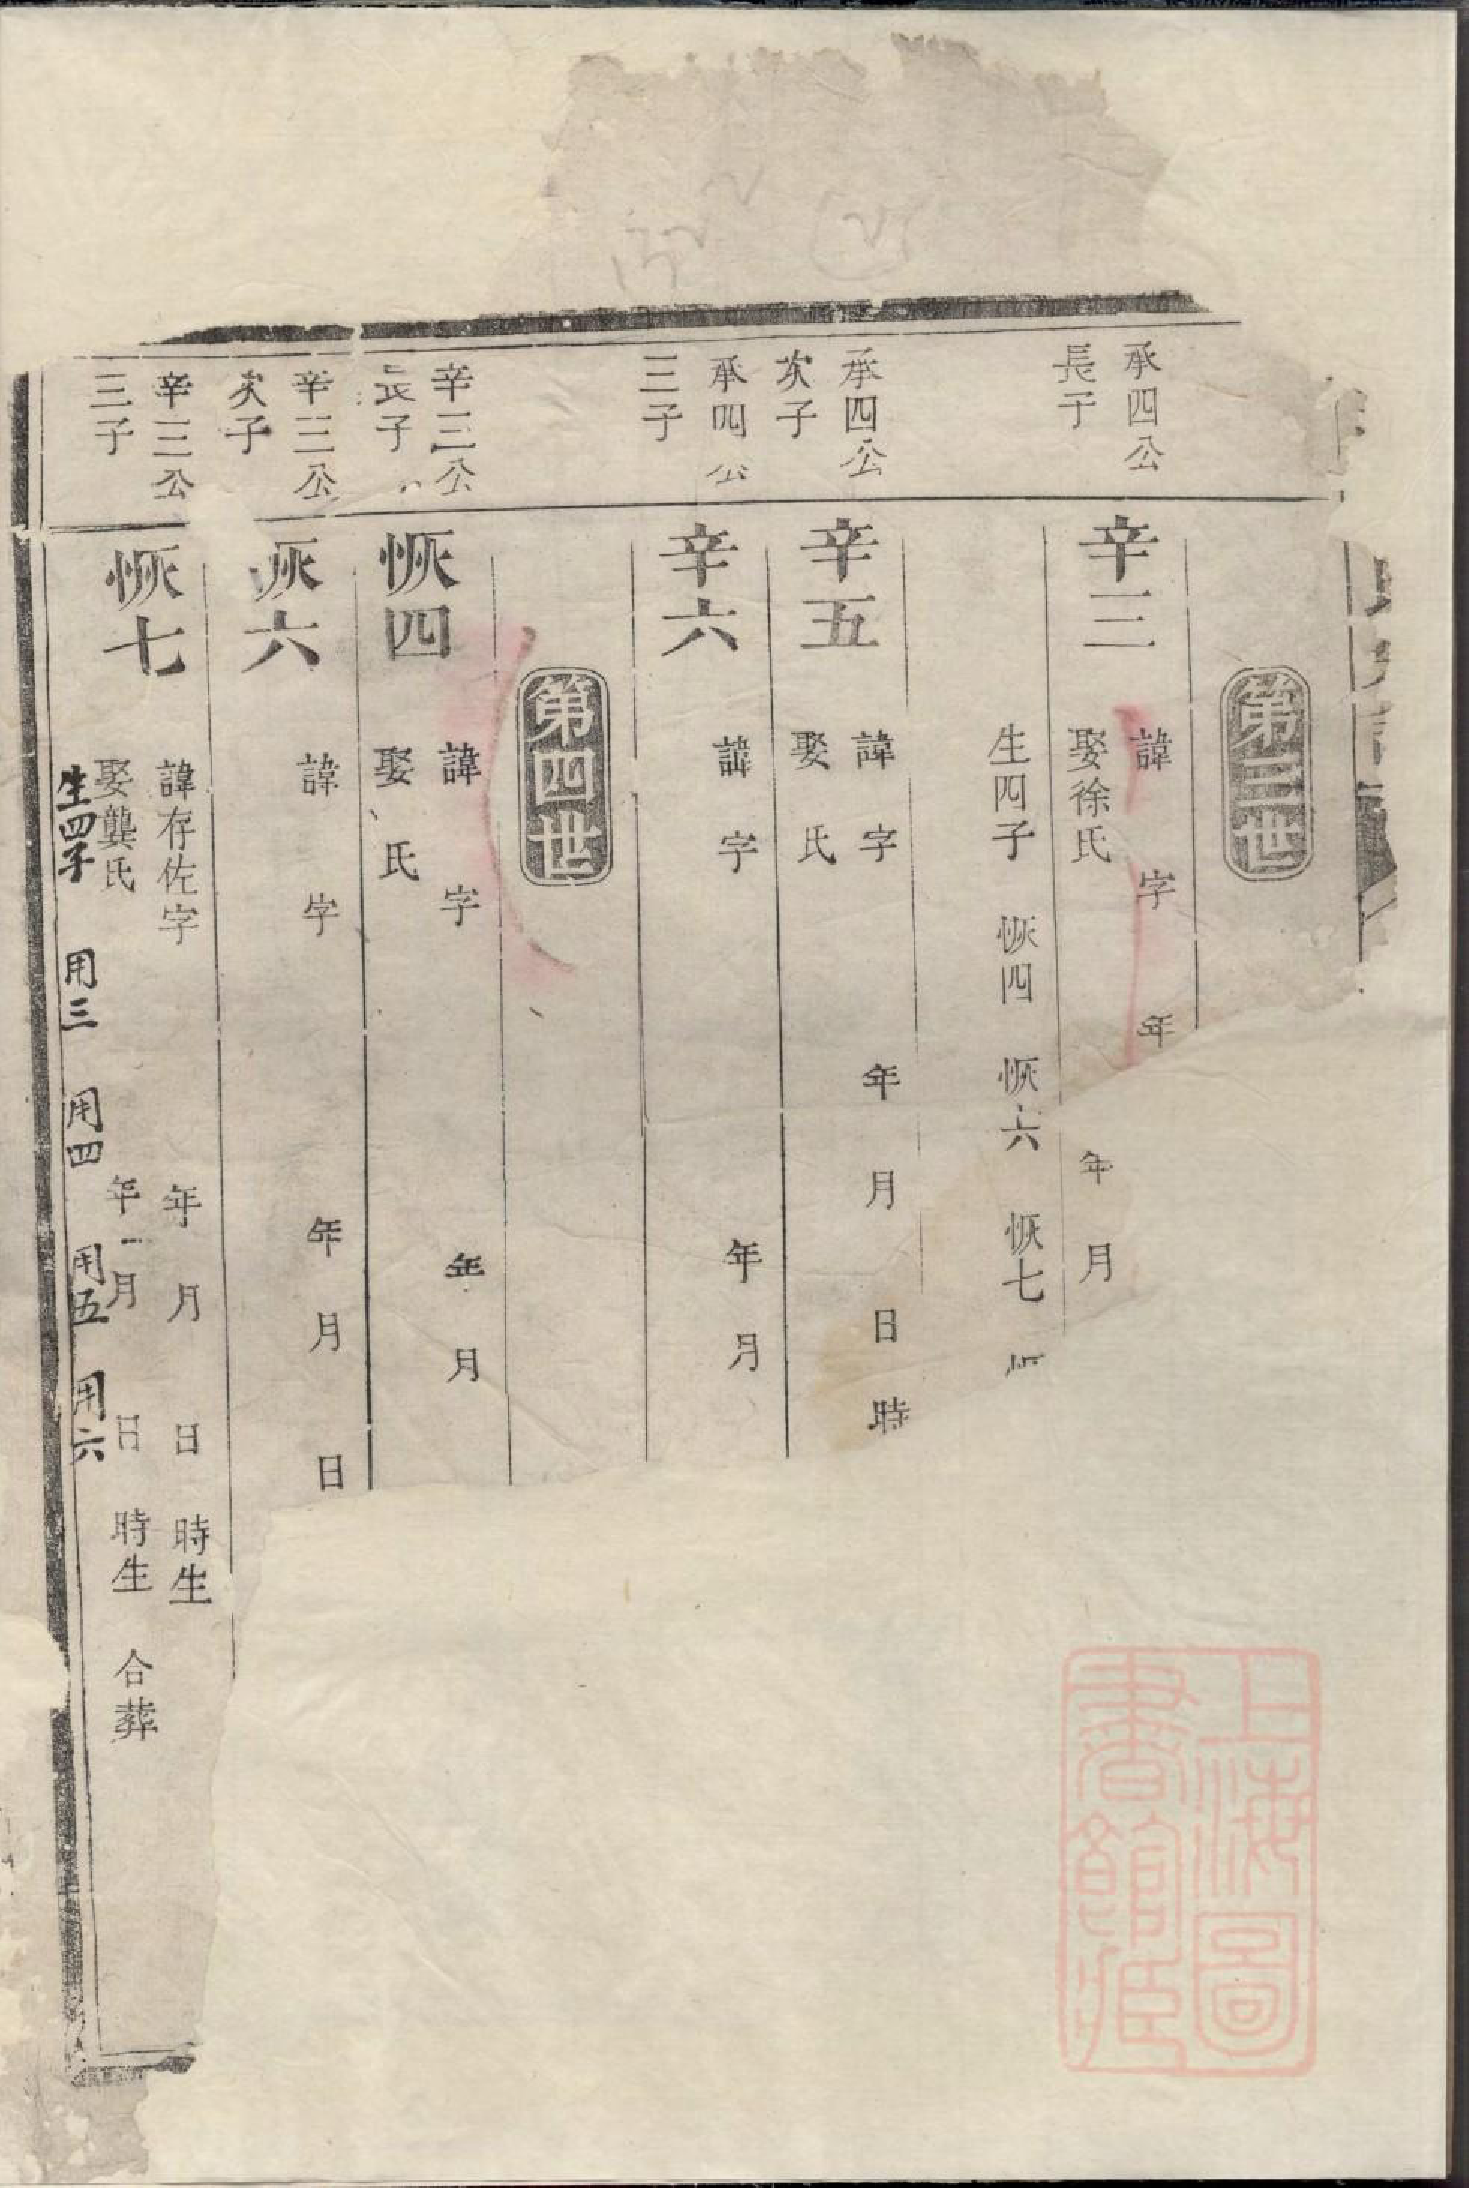 第三世
承四公
長子
辛三
諱 字 年
娶徐氏 年 月
生四子 恢四 恢六 恢七
承四公
次子
辛五
諱 字 年 月 日 時
娶 氏
承四公
三子
辛六
諱 字 年 月
第四世
辛三公
長子
恢四
諱 字 年 月
娶 氏
辛三公
次子
恢六
諱 字 年 月 日
辛三公
三子
恢七
諱存佐字 年 月 日 時生
娶龔氏 年 月 日 時生 合葬
生四子 用三 用四 用五 用六
上海圖
書館藏